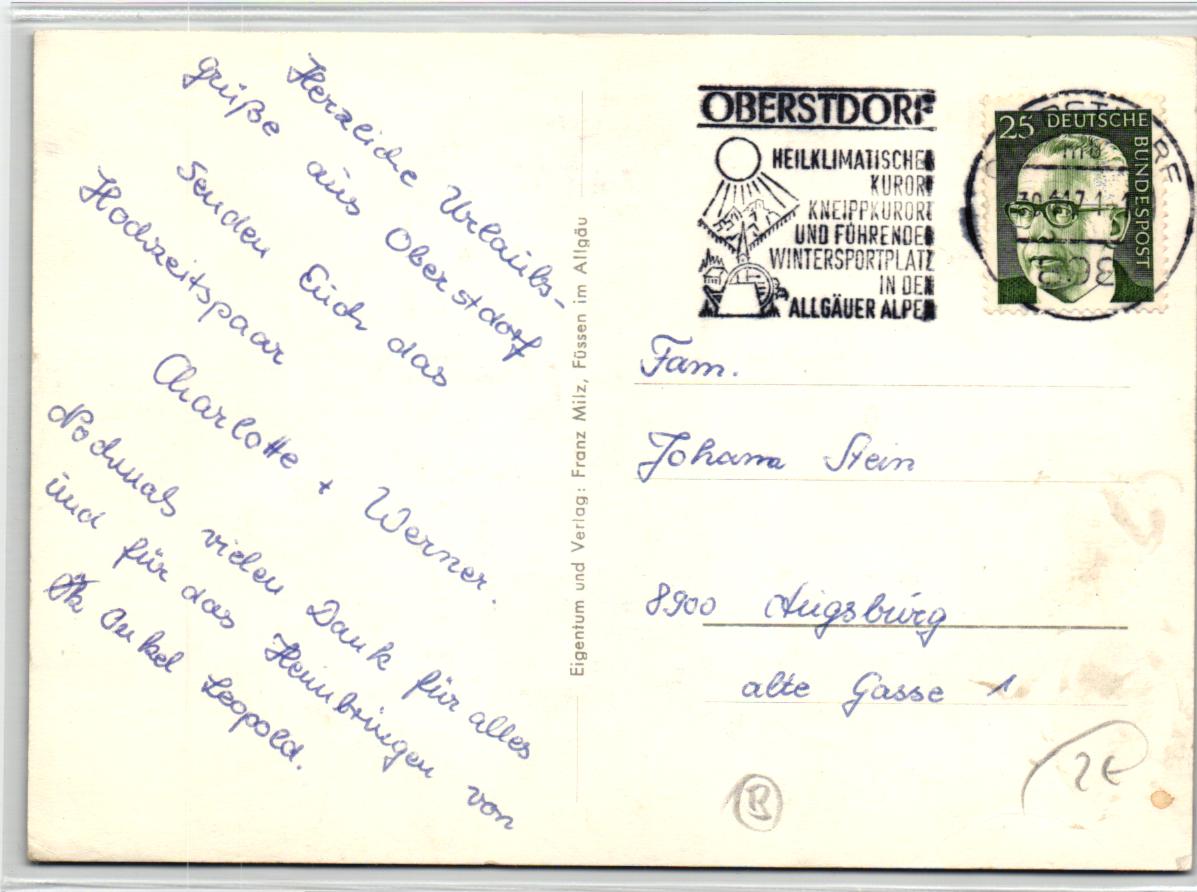 Herzliche Urlaubs-
grüße aus Oberstdorf
senden Euch das
Hochzeitspaar
Charlotte + Werner.
Nochmals vielen Dank für alles
und für das Heimbringen von
Onkel Leopold.
Eigentum und Verlag: Franz Milz, Füssen im Allgäu
OBERSTDORF
HEILKLIMATISCHER
KURORT
KNEIPPKURORT
UND FÜHRENDER
WINTERSPORTPLATZ
IN DEN
ALLGÄUER ALPEN
25 DEUTSCHE
BUNDESPOST
Fam.
Johann Stein
8900 Augsburg
alte Gasse 1
B
2€